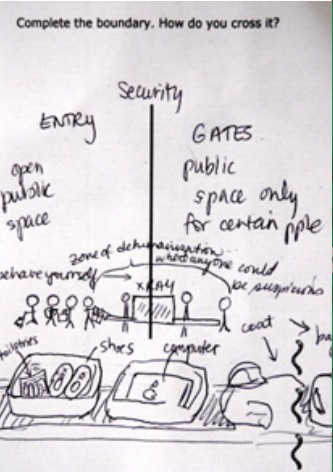 Complete the boundary. How do you cross it?
Security
ENTRY
GATES
open
public
space
public
space only
for certain pple
zone of dehumanization
where anyone could
be suspicious
behave yourself
XRAY
toiletries
shoes
computer
coat